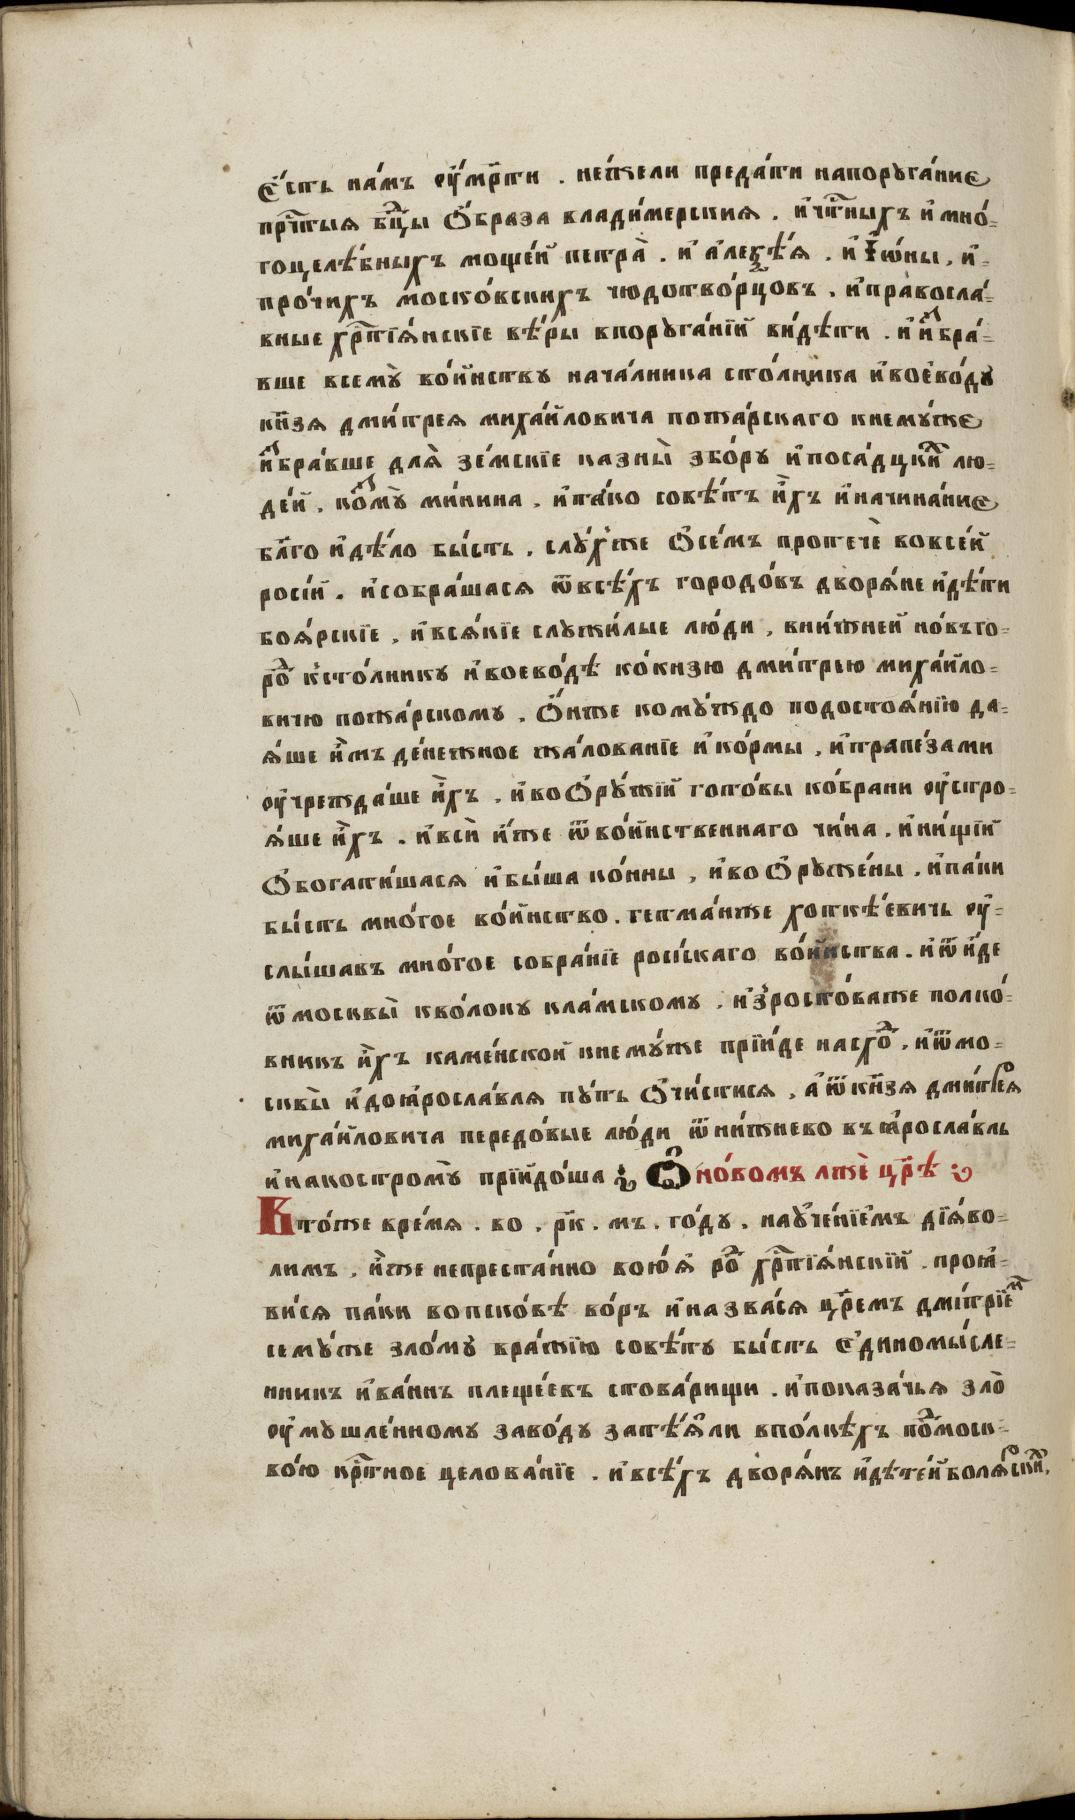 є҆́сть на́мъ ᲂу҆́мр҃ти . не́жели преда́ти напоруга́ние
прⷭ҇тыя бцⷣы ѻ҆́браза влади́мерския . и҆ чтⷭ҇ныхъ и҆ мно́-
гоцелѣ́бныхъ моще́й петра̀ . и҆ а҆леѯѣ́я . и҆ і҆ѡ́ны . и҆-
про́чихъ моско́вскихъ чюдотво́рцовъ . и҆ правосла́-
вные хрⷭ҇тїя́нскїе вѣ́ры впоруга́нїи ви́дѣти . и҆ и҆ⷥбра́-
вше всемꙋ̀ во́инству нача́лника сто́лника и҆ воево́ду
кн҃зя дми́трея миха́йловича пожа́рскаго кнему́же
и҆ⷥбра́вше для̀ зе́мские казны̀ збо́ру и҆ поса́дцкиⷯ лю-
де́й . коⷥмꙋ̀ ми́нина . и҆ та́ко совѣ́тъ и҆́хъ и҆ начина́ние
бл҃го и҆ дѣ́ло бы́сть . слу́хже ѻ҆се́мъ протечѐ во все́й
росі́й . и҆ собра́шася ѿ всѣ́хъ городо́въ дворя́не и҆ дѣ́ти
боя́рскїе . и҆ вся́кїе служи́лые лю́ди . вни́жней но́въго-
роⷣ ксто́лнику и҆ воево́дѣ ко кн҃зю дми́трью миха́йло-
вичю пожа́рскому . ѻ҆́нже кому́ждо по достоя́нїю да-
я́ше и҆̀мъ де́нежное жа́лованїе и҆ ко́рмы . и҆ трапе́зами
ᲂу҆чрежда́ше и҆́хъ . и҆ во ѻ҆ру́жїй гото́вы ко́брани ᲂу҆стро-
я́ше и҆́хъ . и҆ всѝ и҆́же ѿ во́инственнаго чи́на . и҆ ни́щїй
ѻ҆богати́шася и҆ бы́ша ко́нны . и҆ во ѻ҆руже́ны . и҆ па́ки
бы́сть мно́гое во́инство . гетма́нже хоткѣ́евичь ᲂу҆-
слы́шавъ мно́гое собра́нїе росі́скаго во́инства . и҆ ѿи́де
ѿ москвы̀ кво́локу кла́мскому . и҆зросто́важе полко́-
вникъ и҆́хъ каме́нской кнему́же прїи́де насхоⷣ . и҆ ѿ мо-
сквы̀ и҆ до ꙗ҆росла́вля пу́ть ѻ҆чи́стися . а҆ ѿ кн҃зя дми́трея
миха́йловича передо́вые лю́ди ѿ ни́жнево въ ꙗ҆росла́вль
и҆ на костромꙋ̀ прїидо́ша ѻ҆ но́вомъ лжѐ цр҃ѣ
Вто́же вре́мя . во . р҃к . мъ . го́ду . научє́нїемъ дїя́во-
лимъ . и҆́же непреста́нно вою́я роⷣ хрⷭ҇тїя́нскїй . проꙗ҆-
ви́ся па́ки во пско́вѣ во́ръ и҆ назва́ся цр҃емъ дми́трїеⷨ
сему́же зло́му вра́жїю совѣ́ту бы́сть є҆диномы́сле-
нникъ и҆ва́нъ плеще́евъ ствара́рищи . и҆ показа́чья зло̀
ᲂу҆мушле́нному заво́ду затѣ́яли впо́лкѣхъ поⷣмоск-
во́ю крⷭ҇тное целова́нїе . и҆ всѣ́хъ дворя́нъ и҆ дѣте́й боля́рскиⷯ.